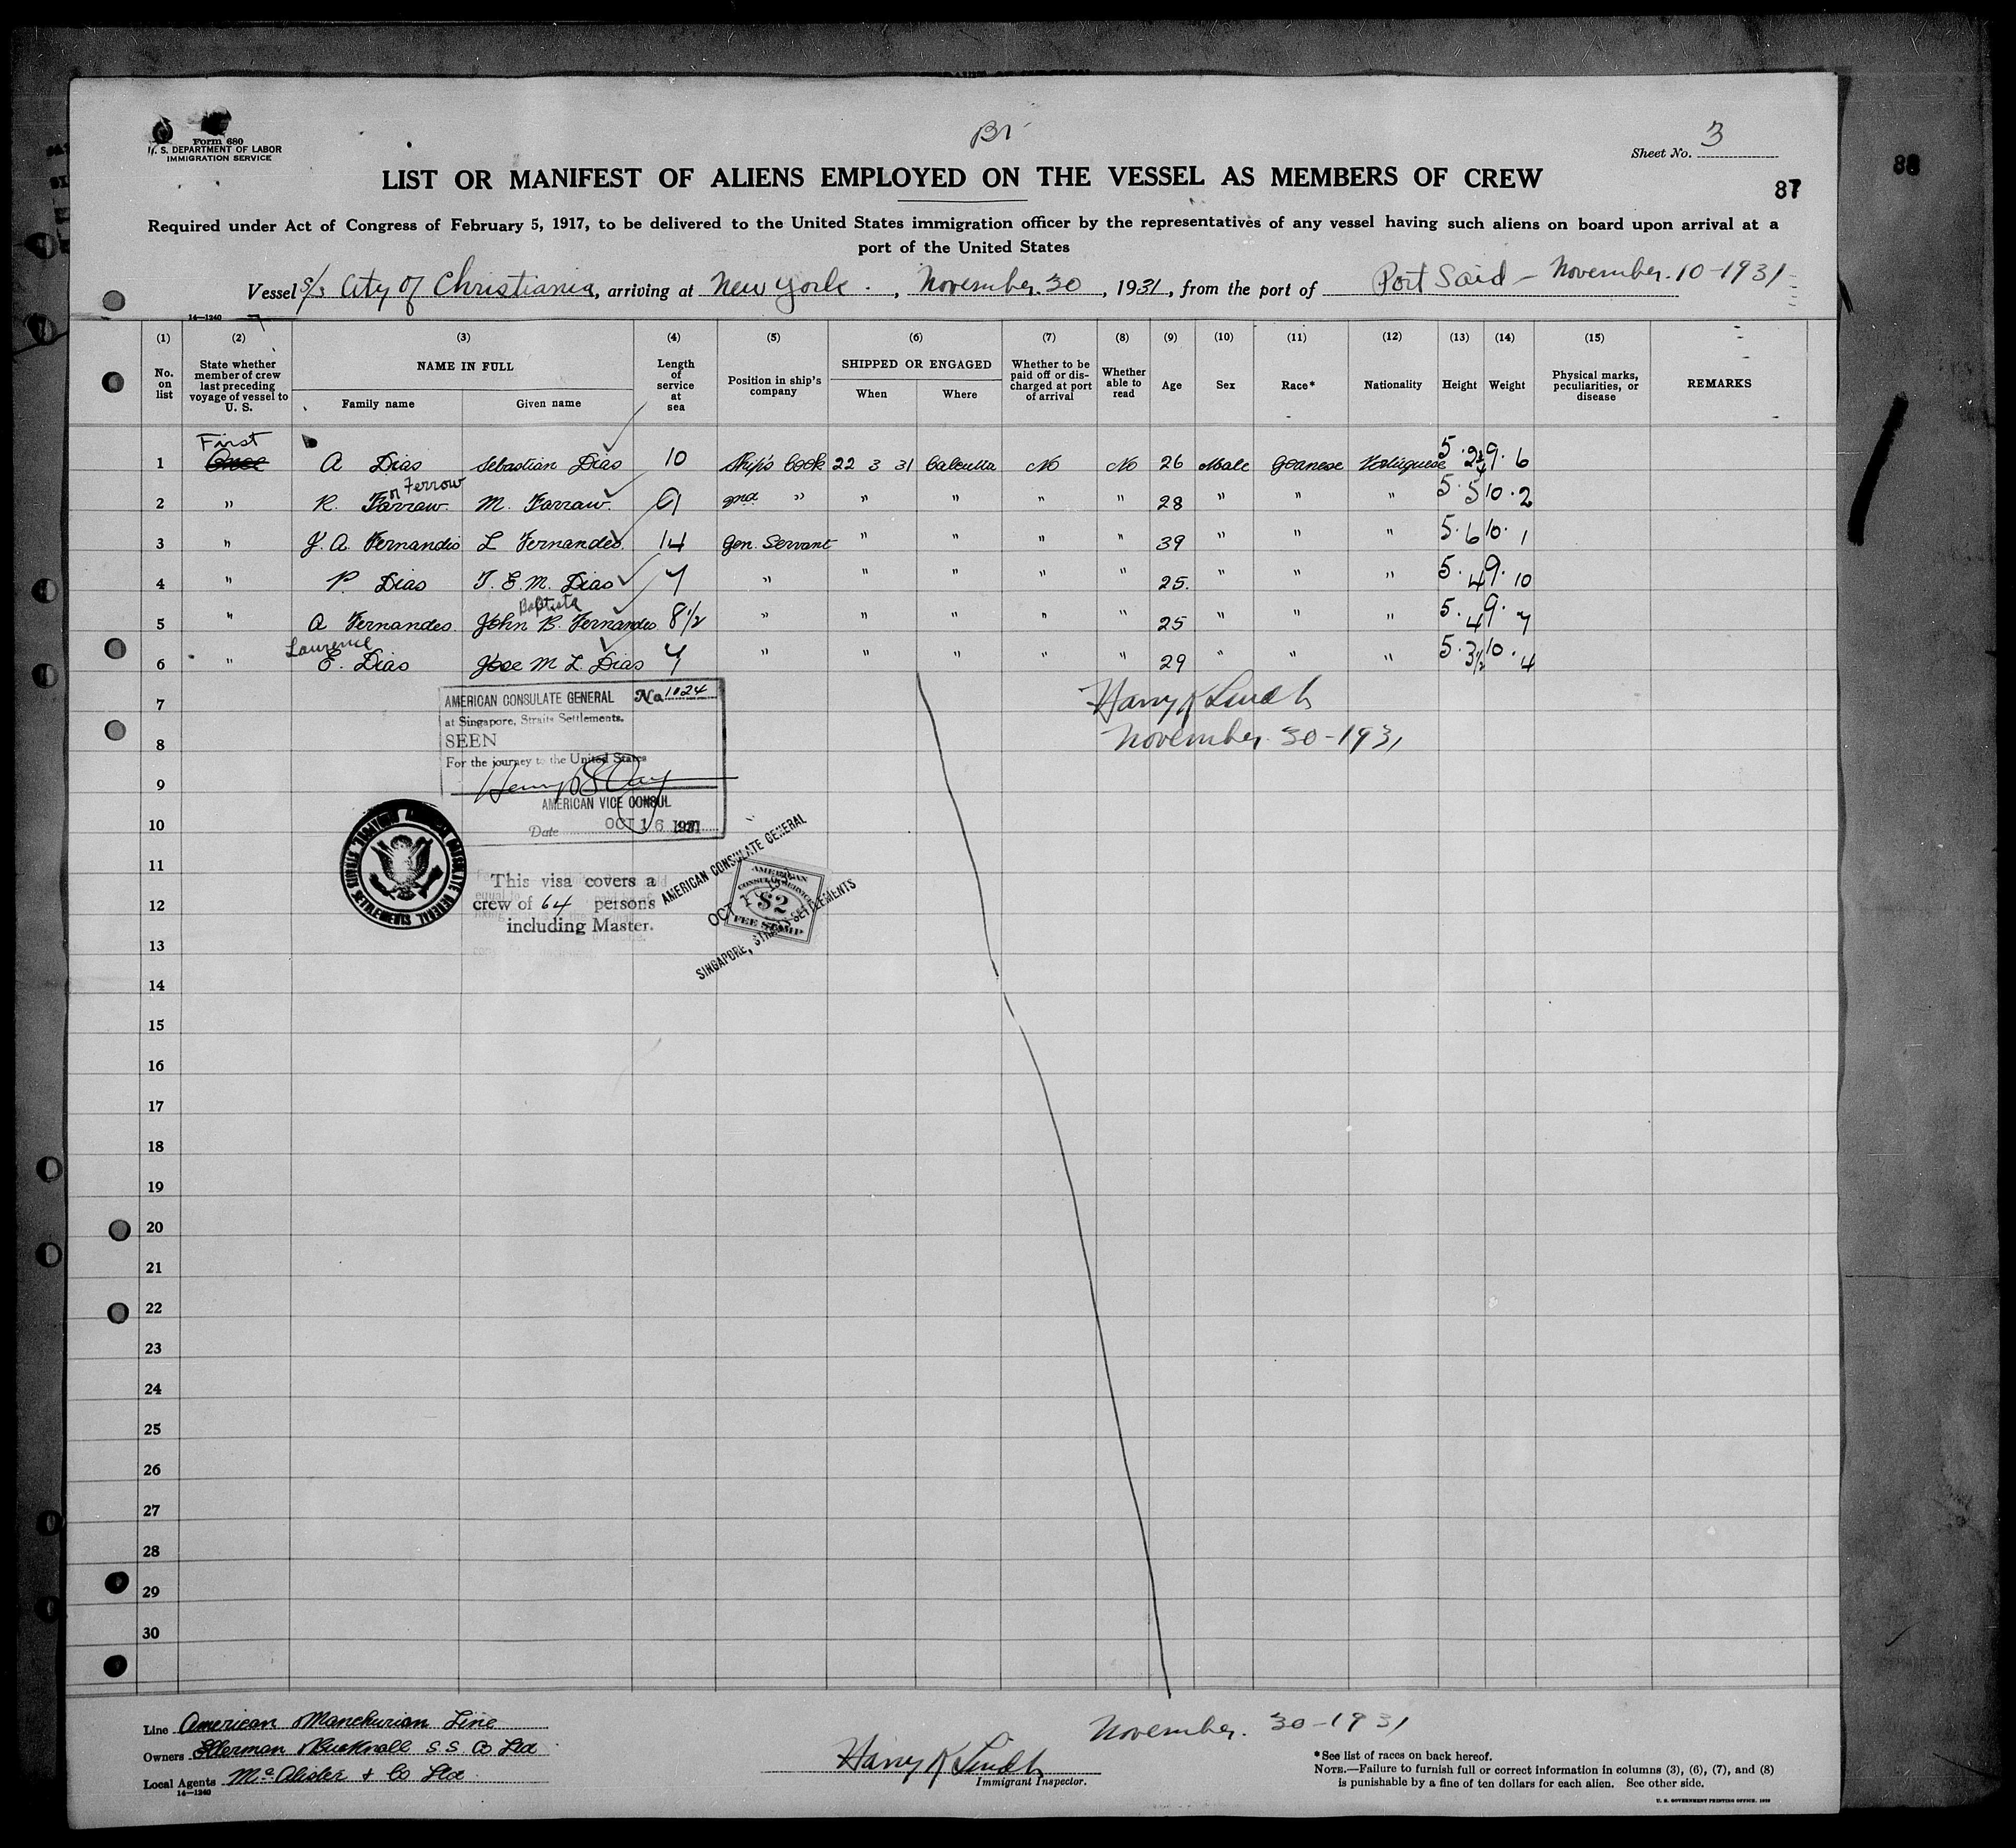 Form 680
U. S. DEPARTMENT OF LABOR
IMMIGRATION SERVICE
Br
Sheet No. 3
LIST OR MANIFEST OF ALIENS EMPLOYED ON THE VESSEL AS MEMBERS OF CREW
87
88
Required under Act of Congress of February 5, 1917, to be delivered to the United States immigration officer by the representatives of any vessel having such aliens on board upon arrival at a
port of the United States
Vessel S/s City of Christiania, arriving at New York., November 30, 1931, from the port of Port Said - November 10-1931
14—1240
(1) (2) (3) (4) (5) (6) (7) (8) (9) (10) (11) (12) (13) (14) (15)
No. on list
State whether member of crew last preceding voyage of vessel to U. S.
NAME IN FULL
Family name
Given name
Length of service at sea
Position in ship's company
SHIPPED OR ENGAGED
When
Where
Whether to be paid off or discharged at port of arrival
Whether able to read
Age
Sex
Race*
Nationality
Height
Weight
Physical marks, peculiarities, or disease
REMARKS
First
1 A Dias Sebastian Dias 10 Ship's Cook 22 3 31 Calcutta No No 26 Male Goanese Portuguese 5.2¼ 9.6
or Ferrow
2 " R. Farraw. M. Farraw. 9 2nd " " " " " 28 " " " 5.5 10.2
3 " J. A. Fernandis L Fernandes. 14 Gen. Servant " " " " 39 " " " 5.6 10.1
4 " P. Dias T. E. M. Dias 7 " " " " " 25. " " " 5.4 9.10
Baptista
5 " A Fernandes. John B. Fernandes 8½ " " " " " 25 " " " 5.4 9.7
Laurence
6 " E. Dias Jose M L. Dias 7 " " " " " 29 " " " 5.3½ 10.4
7
8
9
10
11
12
13
14
15
16
17
18
19
20
21
22
23
24
25
26
27
28
29
30
Harry K Lindh
November 30-1931
AMERICAN CONSULATE GENERAL No 1024
at Singapore, Straits Settlements.
SEEN
For the journey to the United States
AMERICAN VICE CONSUL
Date OCT 16 1931
This visa covers a
crew of 64 persons
including Master.
AMERICAN CONSULATE GENERAL
OCT
SINGAPORE, STRAITS SETTLEMENTS
AMERICAN
CONSULAR SERVICE
$2
FEE STAMP
Line American & Manchurian Line
Owners Ellerman & Bucknall S.S. Co Ltd
Local Agents McAlister & Co Ltd.
14—1240
November. 30-1931
Harry K Lindh
Immigrant Inspector.
*See list of races on back hereof.
NOTE.—Failure to furnish full or correct information in columns (3), (6), (7), and (8)
is punishable by a fine of ten dollars for each alien. See other side.